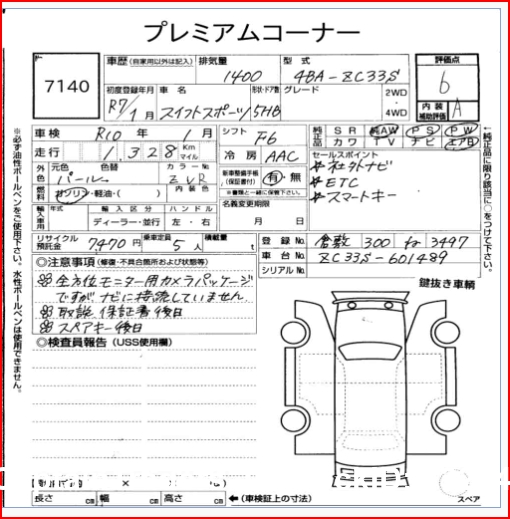 プレミアムコーナー
7140
車歴 (自家用以外は記入) 排気量 1400 型式 4BA-ZC33S
評価点 6
内装補助評価 A
初度登録年月 R7/1月 車名 スイフトスポーツ 形状・ドア数 5HB グレード 2WD・4WD
車検 R10年 1月 シフト F6
純正品 SR 純AW PS PW カワ TV ナビ エアB
走行 1,328 Km マイル 冷房 AAC
セールスポイント
※社外ナビ
※ETC
※スマートキー
外色 元色 パール 色替 カラーNo ZVR 内装色
新車整備手帳(保証書付) 有・無
※書類と一緒に保管下さい。
燃料 ガソリン・軽油・( )
名義変更期限 月 日
輸入車用 年式 輸入区分 ディーラー・並行 ハンドル 左・右
リサイクル預託金 7470円 乗車定員 5人 積載量 t
登録No. 倉敷 300 ね 3497
車台No. ZC33S-601489
シリアルNo.
◎注意事項 (修復・不具合箇所および状態等)
※全方位モニター用カメラパッケージ
ですが、ナビに接続していません
※取説 保証書後日
※スペアキー後日
鍵抜き車輌
◎検査員報告 (USS使用欄)
長さ cm 幅 cm 高さ cm ←(車検証上の寸法)
スペア
※必ず油性ボールペンをご使用下さい。水性ボールペンは使用できません。
←純正品に限り該当に○をつけて下さい。